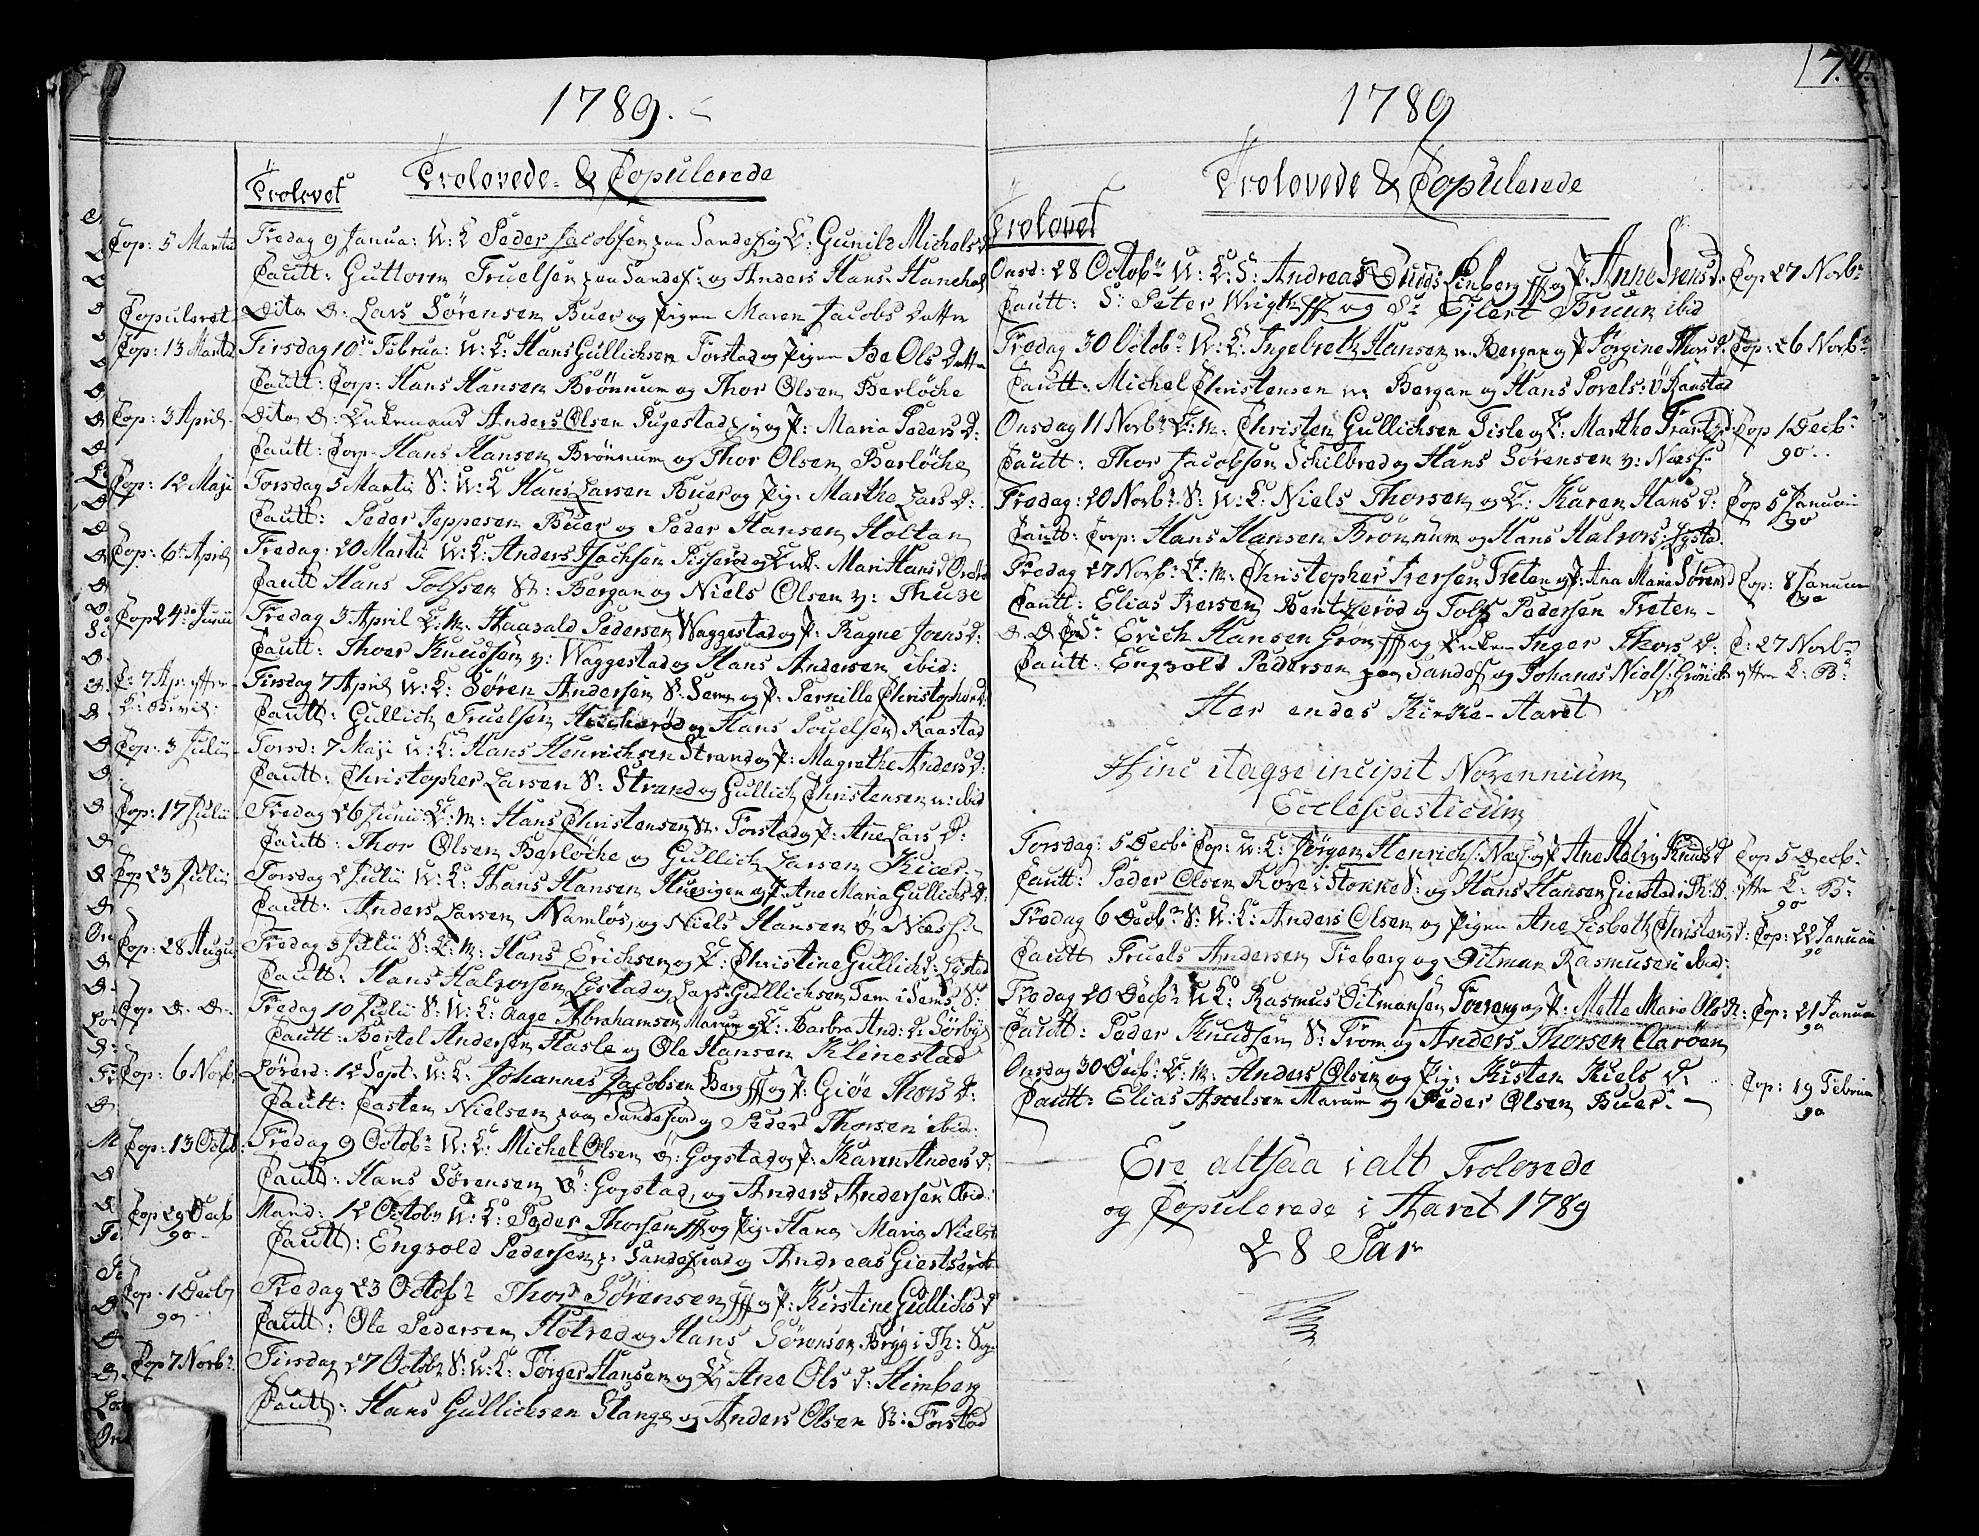 1789.
Trolovede & Copulerede
Trolovet
Cop: 5 Martii
Fredag 9 Janua: U: K Peder Jacobsen paa Sandef: og E: Gunild Michels D
Cautt: Guttorm Truelsen paa Sandef: og Anders Hans: Hanehol
Copuleret
Dito D: Lars Sörensen Buer og Pigen Maren Jacobs Datter
Cop: 13 Martii
Tirsdag 10de Februa: U: K: Hans Gullichsen Forstad og Pigen Ide Ols Datter
Cautt: Corp: Hans Hansen Brönnum og Thor Olsen Berlöche
Cop: 3 April
Dito D: Enkemand Anders Olsen Pugestad og P: Maria Peders D:
Cautt: Corp: Hans Hansen Brönnum og Thor Olsen Berlöche
Cop: 12 Maji
Torsdag 5 Martii S: U: K Hans Larsen Buer og Pig: Marthe Lars D:
Cautt: Peder Jeppesen Buer og Peder Hansen Holtan
Cop: 6te April
Fredag: 20 Martii U: K: Anders Isachsen og Mari Hans D
Cautt Hans Tolfsen St: Bergan og Niels Olsen y: Thuve
Cop 24de Junii
Fredag 3 April L: M: Haavald Pedersen Waggestad og P: Ragne Joens D:
Cautt: Thoer Knudsen y: Waggestad og Hans Andersen ibid:
C: 7 Ap. efter
Tirsdag 7 April U: K: Sören Andersen S: Sem og P: Pernille Christopher D
Cautt: Gullich Truelsen og Hans Pouelsen Raastad
Cop: 3 Julii
Torsd: 7 Maji U: K: Hans Henrichsen Strand og P: Magrethe Anders D:
Cautt: Christopher Larsen S: Strand og Gullich Christensen n: ibid
Cop: 17 Julii
Fredag 26 Junii L: M: Hans Christensen St: Forstad og P: Ane Lars D:
Cautt: Thor Olsen Berlöche og Gullich Larsen
Cop 23 Julii
Torsdag 2 Julii U: K: Hans Hansen og P: Ane Maria Gullichs D:
Cautt: Anders Larsen Namlös, og Niels Hansen Ö: Næss
Cop: 28 Augu
Fredag 3 Julii S: L: M: Hans Erichsen og E: Christine Gullich D: Lystad
Cautt: Hans Halvorsen Lystad og Lars Gullichsen Sem i Sems S:
Cop: D. D.
Fredag 10 Julii S: U: K: Aage Abrahamsen Marum og E: Barbra And: D: Sörby
Cautt: Bertel Andersen Hasle og Ole Hansen Klinestad
Cop: 6 Novb:
Löverd: 12 Sept: U: K: Johannes Jacobsen Berg ff og P: Giöe Thors D:
Cautt: Casten Nielsen paa Sandefiord og Peder Thorsen ibid:
Cop: 13 Octob:
Fredag 9 Octobr U: K: Michel Olsen Ö: Gogstad og P: Karen Anders D:
Cautt: Hans Sörensen Ö: Gogstad, og Anders Andersen ibid:
Cop 29 Decb
90
Mand: 12 Octobr U: K: Peder Thorsen ff og Pig: Hana Maria Niels
Cautt: Engvold Pedersen p: Sandefiord og Andreas Giertsen
Cop: 1 Decb
90
Fredag 23 Octobr Thor Sörensen ff og P: Kirstine Gullichs D
Cautt: Ole Pedersen Holved og Hans Sörensen Bryg i Th: Sogn
Cop 7 Novbr
Tirsdag 27 Octobr S: U: K: Törger Hansen og E: Ane Ols D: Himberg
Cautt: Hans Gullichsen Stange og Anders Olsen St: Forstad
74.
1789
Trolovede & Copulerede
Trolovet
Onsd: 28 Octobr U: K: Sr Andreas Linberg ff og J: Anne Ivers D:
Cop 27 Novbr
Cautt: Sr Peter Wrigth ff og Sr Ejlert Bruun ibid
Fredag 30 Octobr U: K: Ingebreth Hansen n: Bergan og P Jörgine Thors D.
Cop: 26 Novbr
Cautt: Michel Christensen n: Bergan og Hans Povels: Ö Raastad
Onsdag 11 Novbr L: M: Christen Gullichsen Fisle og E: Martha Frantz D
Cop 1 Decbr
90
Cautt: Thor Jacobsen Schilbred og Hans Sörensen y: Næss
Fredag: 20 Novbr S: U: K: Niels Thorsen og E: Karen Hans D:
Cop 5 Januari
90
Cautt: Corp: Hans Hansen Brönnum og Hans Halvors: Lystad
Fredag 27 Novbr L: M: Christopher Iversen Freten og P: Ana Maria Sören D
Cop: 8 Januari
90
Cautt: Elias Iversen Bentzerød og Tolf Pedersen Freten
D. D Sr Erich Hansen Grøn ff og Enken Inger Thors D:
C: 27 Novbr
Cautt: Engvold Pedersen paa Sandef og Johanes Niels:
efter K: B:
Her endes Kirke-Aaret
Hinc itaqve incipit Novennium
Ecclesiasticum
Torsdag: 5 Decbr Cop: U: K: Jörgen Henrichs: Næss og P Ane Helvig Knuds D
Cop 5 Decbr
efter K: B:
90
Cautt: Peder Olsen Rove i Stokke S: og Hans Hansen Gierstad i Th: S:
Fredag 6 Decbr S: U: K: Anders Olsen og Pigen Ane Lisbeth Christens D:
Cop: 22 Januari
90
Cautt Truels Andersen Freberg og Ditman Rasmusen ibid:
Fredag 20 Decbr U K: Rasmus Ditmansen Forvang og P: Mette Marie Ols D:
Cop: 21 Januari
90
Cautt: Peder Knudsen S: From og Anders Thorsen Clarøen
Onsdag 30 Decbr L: M: Anders Olsen og Pig: Kisten Niels D:
Cop: 19 Februa
90
Cautt: Elias Axelsen Marum og Peder Olsen Buer
Ere altsaa i alt Trolovede
og Copulerede i Aaret 1789
28 Par